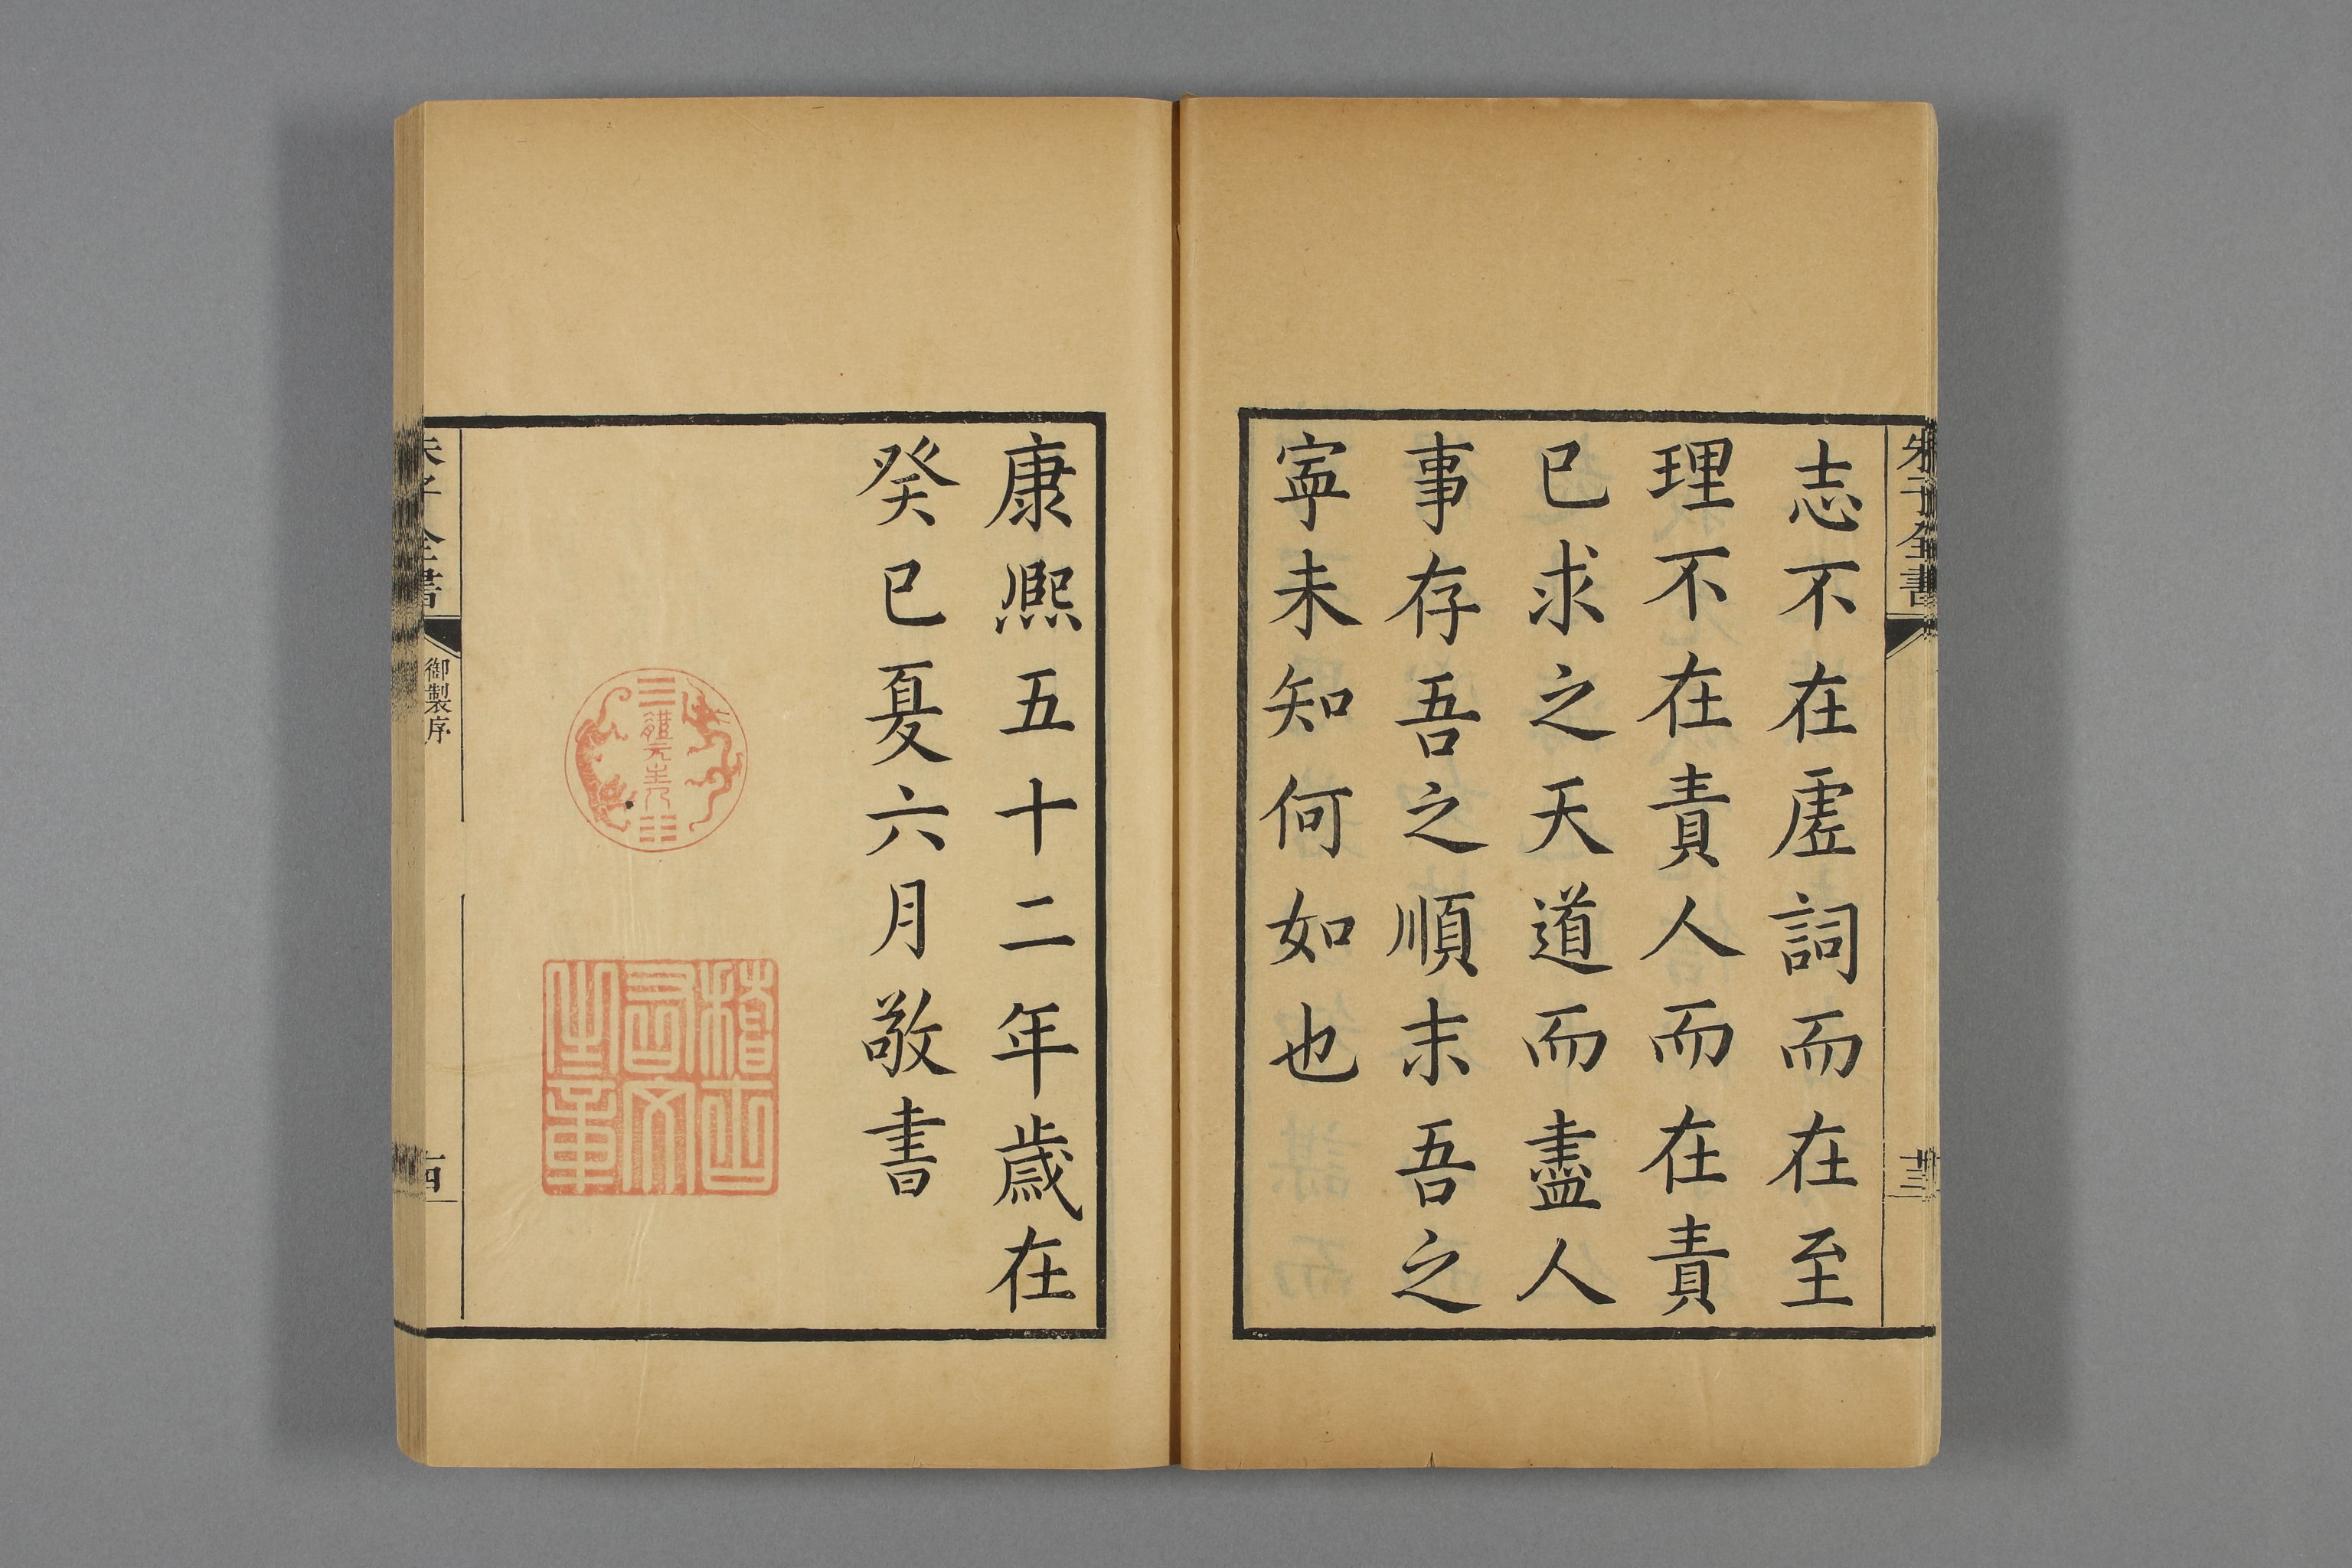 朱子全書
十三
志不在虛詞而在至
理不在責人而在責
已求之天道而盡人
事存吾之順末吾之
寧未知何如也
康熙五十二年歲在
癸巳夏六月敬書
稽古右文之章
朱子全書
御製序